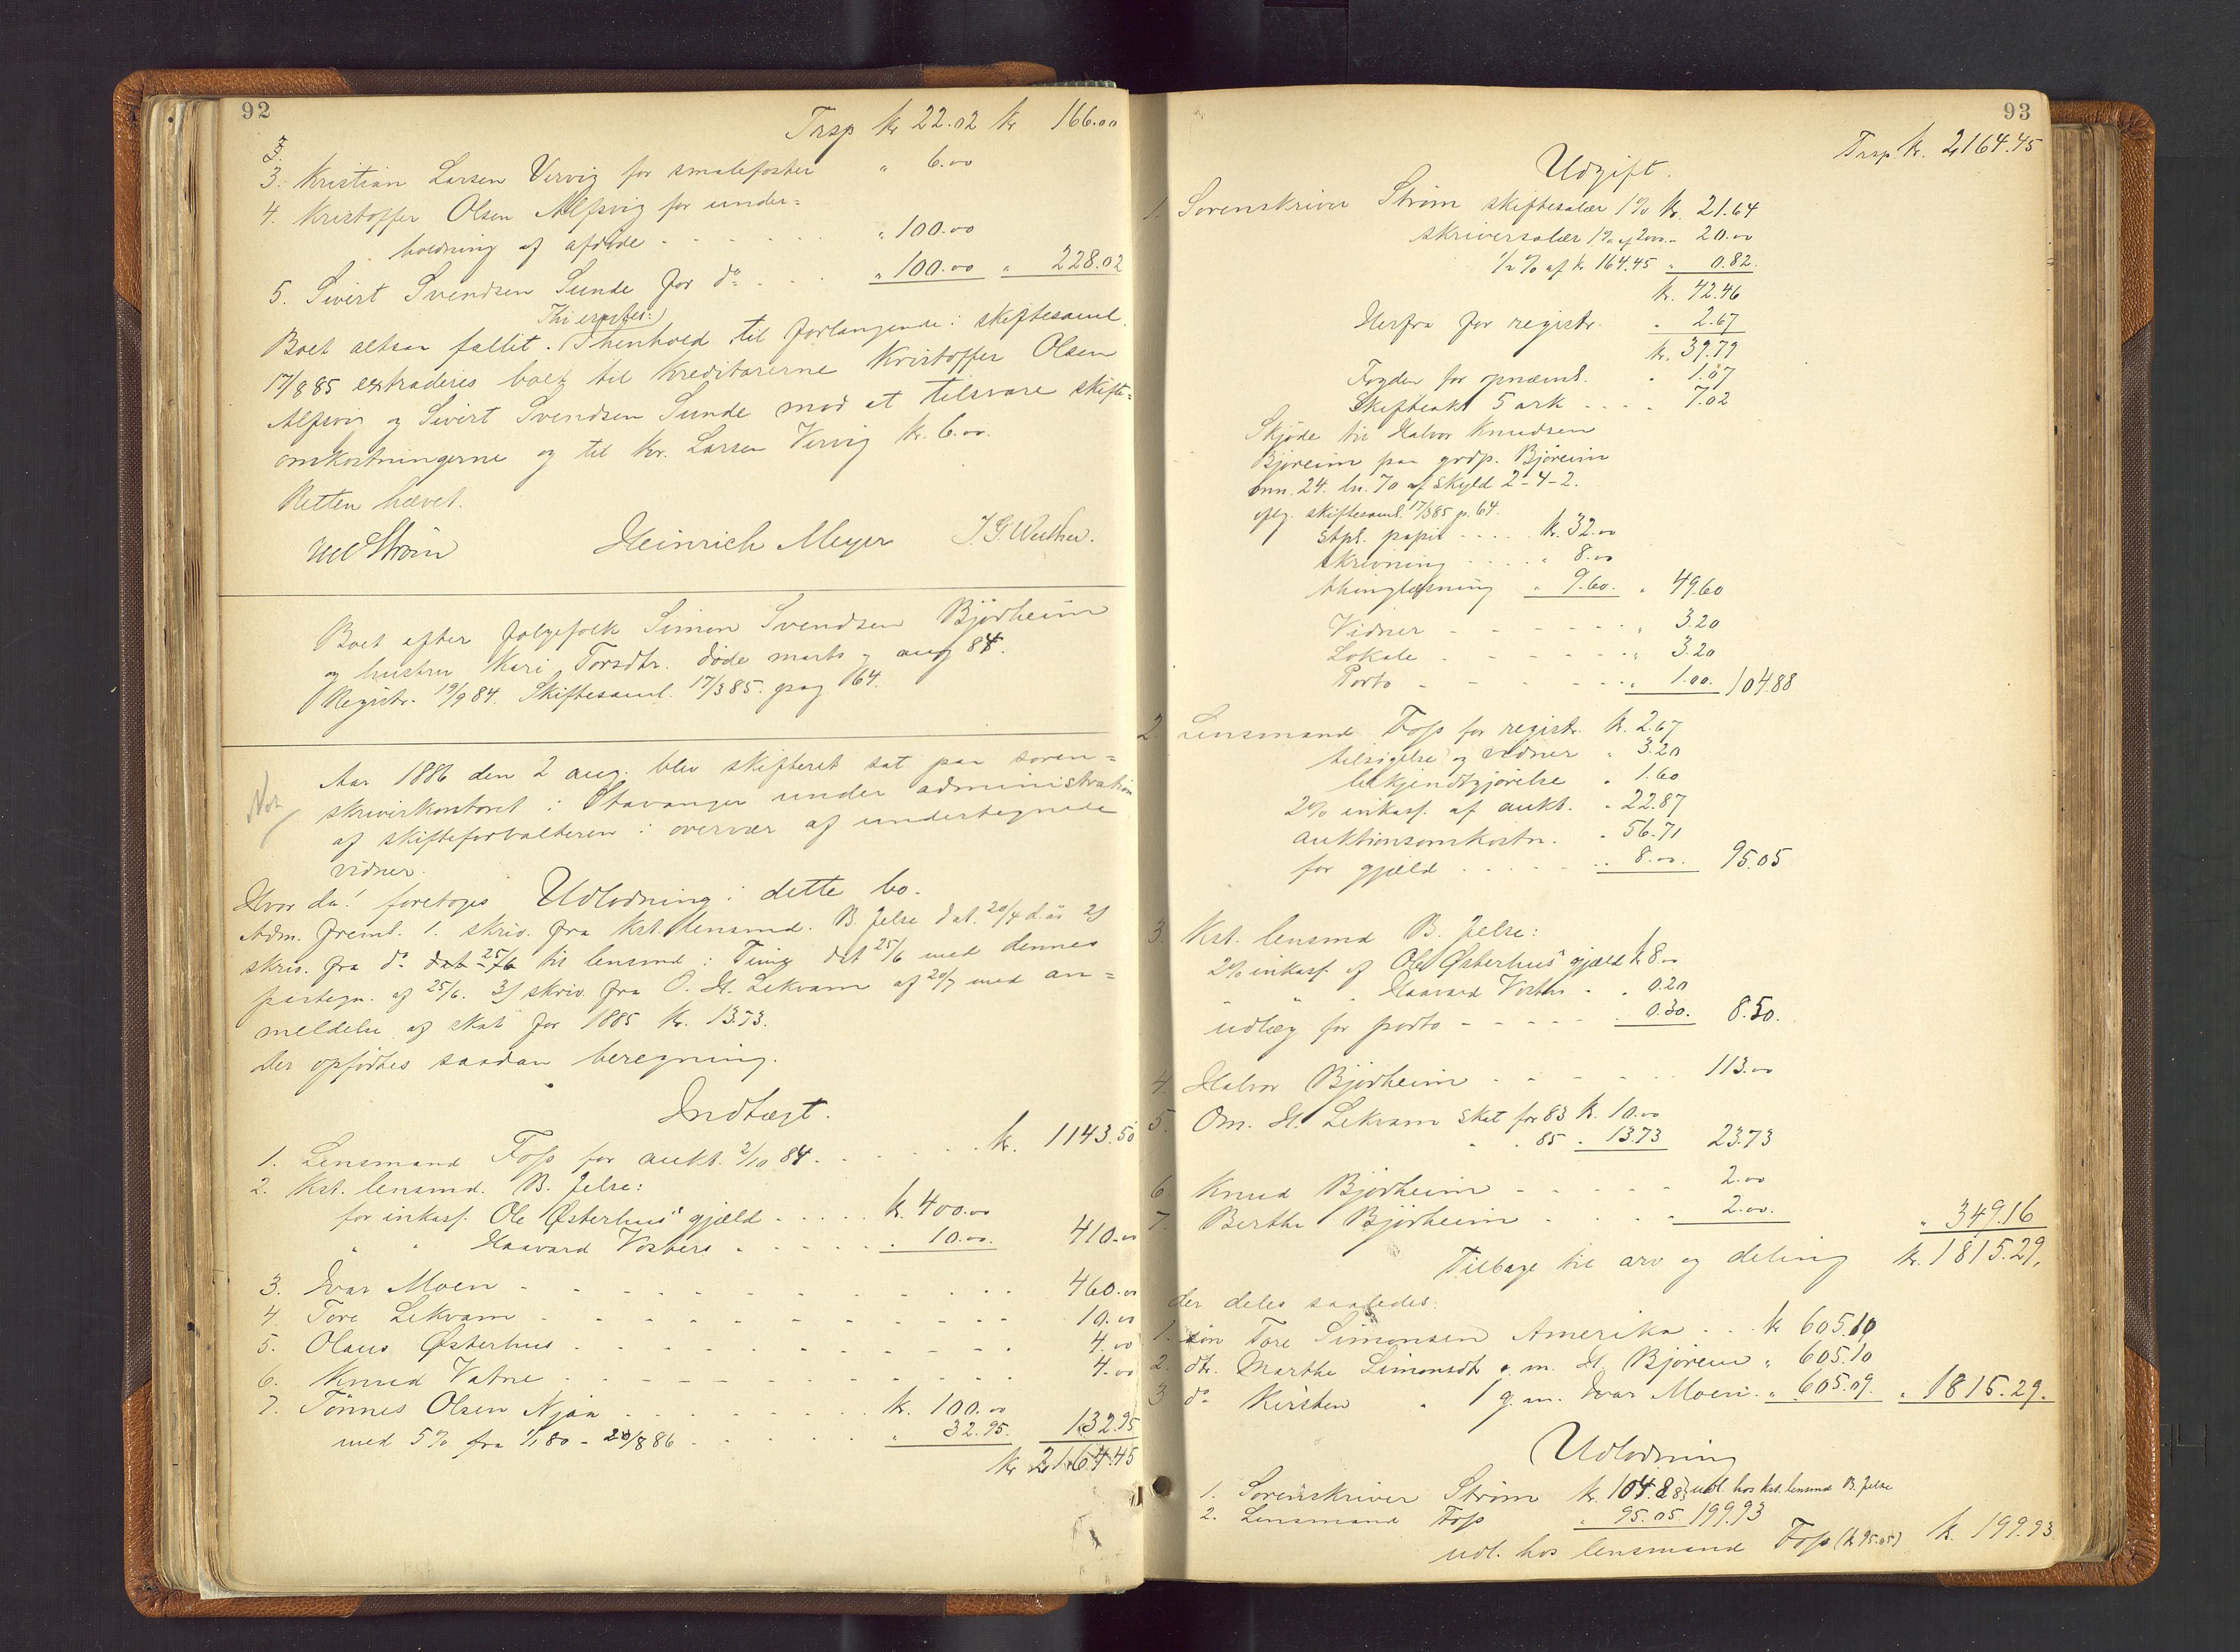 92
Trsp kr 22.02 kr 166.00
3. Kristian Larsen Vervig for smalefoster " 6.00
4. Kristoffer Olsen Alfsvig for under=
holdning af afdøde - - - " 100.00
5. Sivert Svendsen Sunde for do - - " 100.00 " 228.02
Boet altsaa fallit. I henhold til forlangende i skiftesaml.
17/8 85 extraderes boet til kreditorerne Kristoffer Olsen
Alfsvig og Sivert Svendsen Sunde mod at tilsvare skifte=
omkostningerne og til Kr. Larsen Vervig kr. 6.00.
Retten hævet.
Strøm Heinrich Meyer
Boet efter følgefolk Simon Svendsen Bjørheim
og hustru Kari Torsdtr. døde marts og aug 84.
Registr. 19/9 84. Skiftesaml. 17/3 85. pag 64.
Aar 1886 den 2 aug. blev skifteret sat paa soren=
skriverkontoret i Stavanger under administration
af skifteforvalteren i overvær af undertegnede
vidner.
Hvor da! foretoges Udlodning i dette bo.
Adm. freml. 1. skriv. fra kst. lensmd. B. Jelse dat. 20/4 d.å. 2)
skriv. fra do dat 25/6 til lensmd i Time dat 25/6 med dennes
paategn. af 25/6. 3) skriv. fra O. H. Lekvam af 20/7 med an=
meldelse af skat for 1885 kr. 13.73.
Der opførtes saadan beregning.
Indtægt.
1. Lensmand Foss for aukt. 2/10 84 - - - kr. 1143.50
2. Kst. lensmd. B. Jelse:
for inkass. Ole Østerhus' gjæld - - - kr. 400.00
" " Haavard Vosters - - - " 10.00. 410.00
3. Ivar Moen - - - 460.00
4. Tore Lekvam - - - 10.00
5. Olaus Østerhus - - - 4.00
6. Knud Vatne - - - 4.00
7. Tønnes Olsen Njaa - - - kr. 100.00
med 5% fra 1/1 80 - 20/8 86 - - - " 32.95. 132.95
kr 2164.45
93
Trsp. kr. 2164.45
Udgift.
1. Sorenskriver Strøm skiftesalær 1% kr. 21.64
skriversalær 1% af 2000 - 20.00
1/2 % af kr 164.45 " 0.82.
kr. 42.46
Herfra for registr. - 2.67
kr. 39.79
Fogden for opnævnl. - 1.07
Skifteakt 5 ark - - - 7.02
Skjøde til Halvor Knudsen
Bjøreim paa grdp. Bjøreim
mn. 24. ln. 70 af skyld 2-4-2.
oplg. skiftesaml. 17/3 85 p. 64.
Stpl. papir - - - kr. 32.00
skrivning - - - " 8.00
thinglæsning " 9.60. " 49.60
Vidner - - - " 3.20
Lokale - - - " 3.20
Porto - - - " 1.00. 104.88
2. Lensmand Foss for registr. kr. 2.67
tilsigelse og vidner " 3.20
bekjendtgjørelse " 1.60
2% inkass. af aukt. - 22.87
auktionsomkostn. - 56.71
for gjæld - - - 8.00. 95.05
3. Kst. lensmd B. Jelse:
2% inkass. af Ole Østerhus' gjæld kr 8.00
" " " Haavard Vosters - " 0.20
udlæg for porto - - - " 0.30. 8.50.
4. Halvor Bjørheim - - - 113.00
5. Om. H. Lekvam skat for 83 kr. 10.00
" " 85 " 13.73 23.73
6. Knud Bjørheim - - - 2.00
7. Berthe Bjørheim - - - 2.00. " 349.16
Tilbage til arv og deling kr. 1815.29.
der deles saaledes:
1. søn Tore Simonsen Amerika - - kr 605.10
2. dtr. Marthe Simonsdtr g. m. H. Bjøreim " 605.10
3 do Kirsten " g. m. Ivar Moen - " 605.09. " 1815.29.
Udlodning
1. Sorenskriver Strøm kr. 104.88 udl. hos kst. lensmd B. Jelse
2. Lensmand Foss " 95.05 199.93
udl. hos lensmand Foss (kr 95.05) kr. 199.93